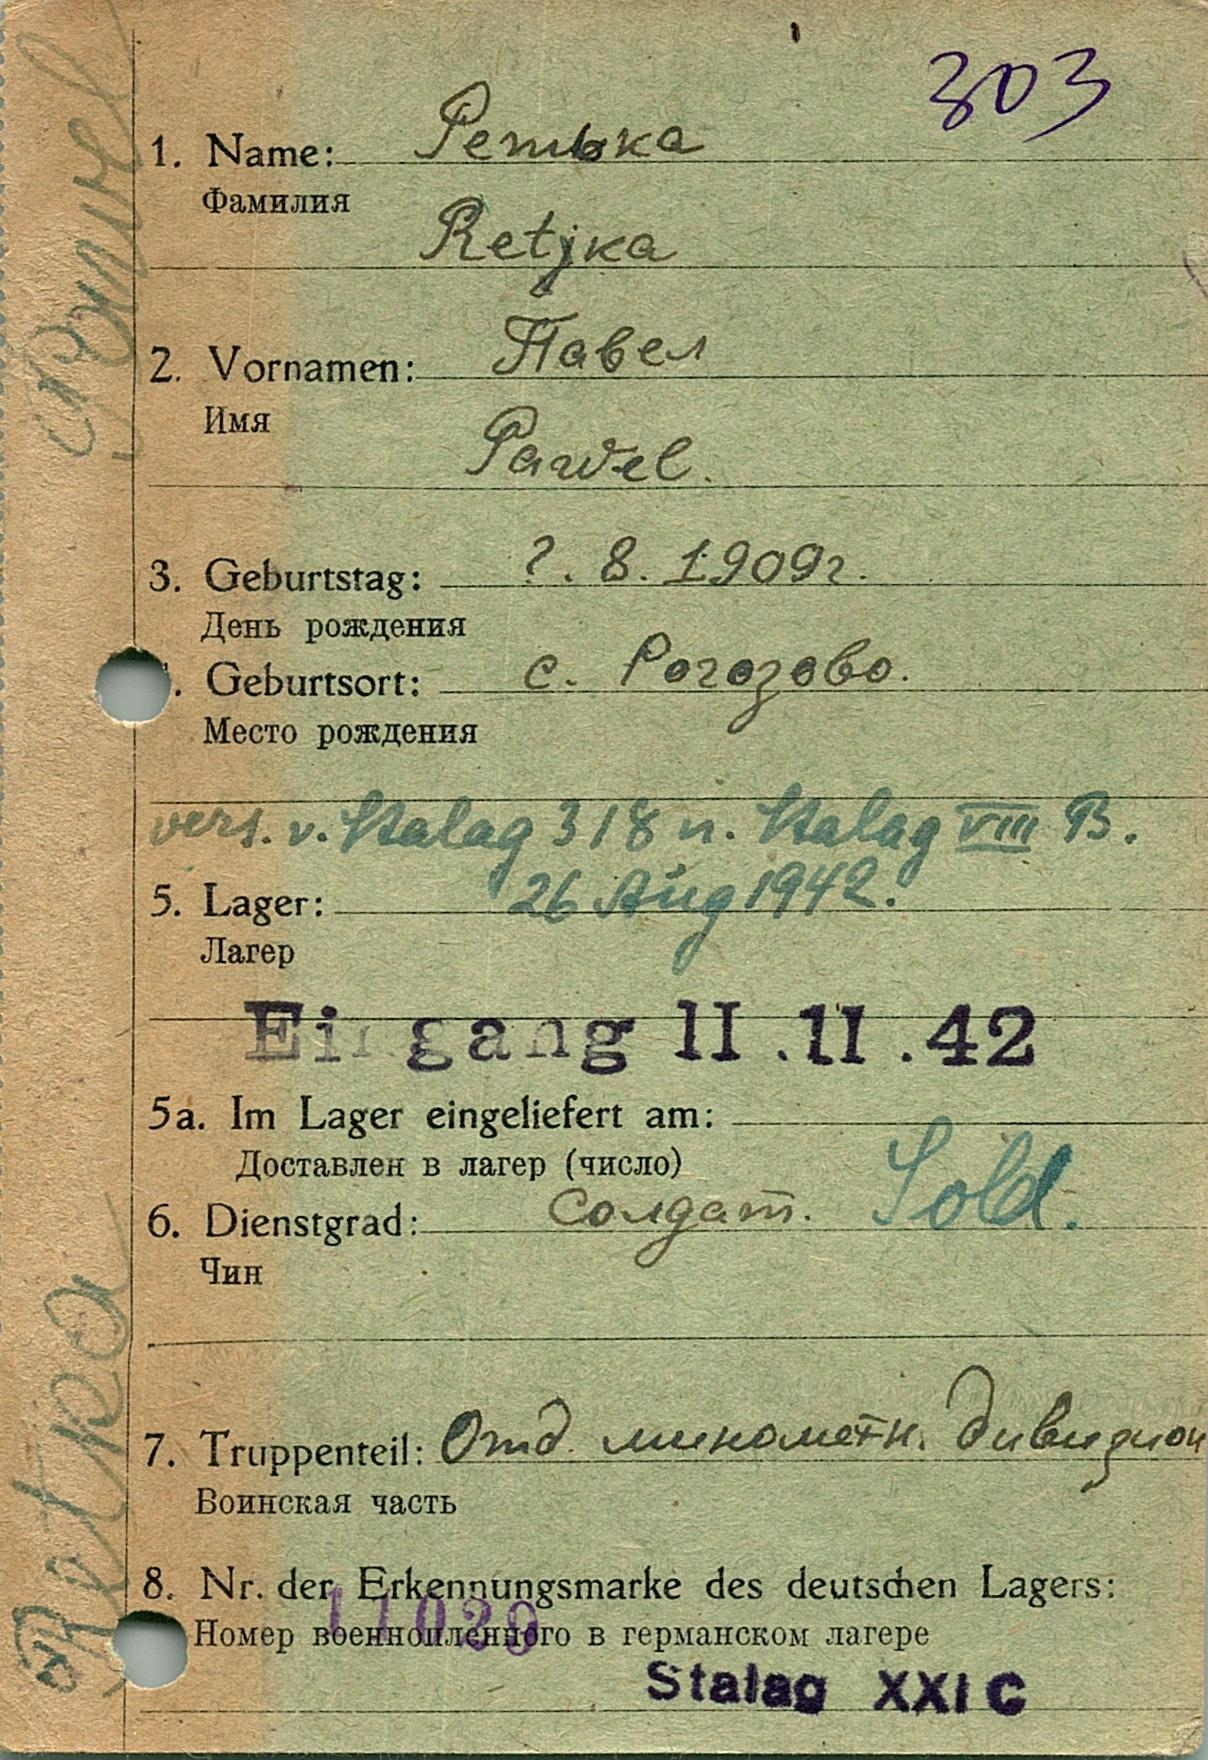 303
1. Name: Ретька
Фамилия
Retjka
2. Vornamen: Павел
Имя
Pawel.
3. Geburtstag: ?. 8. 1909г.
День рождения
. Geburtsort: с. Рогозово.
Место рождения
vers. v. Stalag 318 n. Stalag VIII B.
5. Lager: 26 Aug 1942.
Лагер
Eingang 11.11.42
5a. Im Lager eingeliefert am:
Доставлен в лагер (число)
6. Dienstgrad: солдат. Sold.
Чин
7. Truppenteil: Отд. минометн. дивизион
Воинская часть
8. Nr. der Erkennungsmarke des deutschen Lagers:
11029
Номер военнопленного в германском лагере
Stalag XXI C
Retka
Pawel